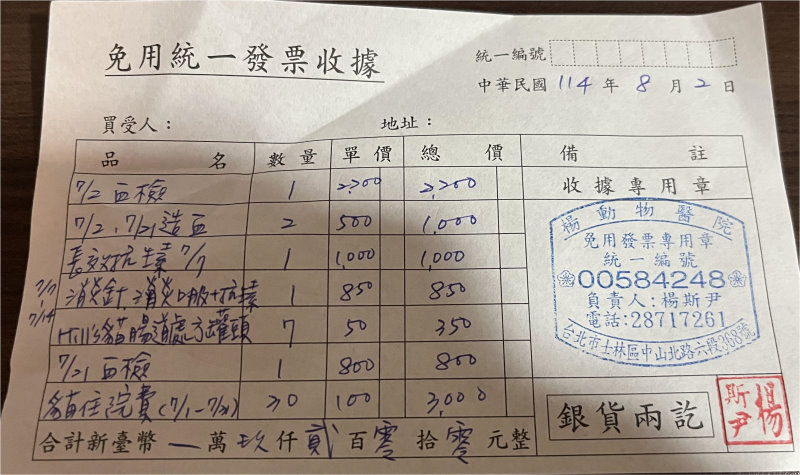 免用統一發票收據
統一編號
中華民國 114 年 8 月 2 日
買受人： 地址：
品名 數量 單價 總價 備註
7/2 血檢 1 2,200 2,200
7/2、7/21 造血 2 500 1,000
長效抗生素 7/7 1 1,000 1,000
7/7、7/14 消炎針、消炎口服+抗生素 1 850 850
Hill's貓腸道處方罐頭 7 50 350
7/21 血檢 1 800 800
貓住院費(7/1-7/31) 30 100 3,000
合計新臺幣 一 萬 玖 仟 貳 百 零 拾 零 元整
收據專用章
楊動物醫院
免用發票專用章
統一編號
00584248
負責人:楊斯尹
電話:28717261
台北市士林區中山北路六段368號
銀貨兩訖
楊斯尹